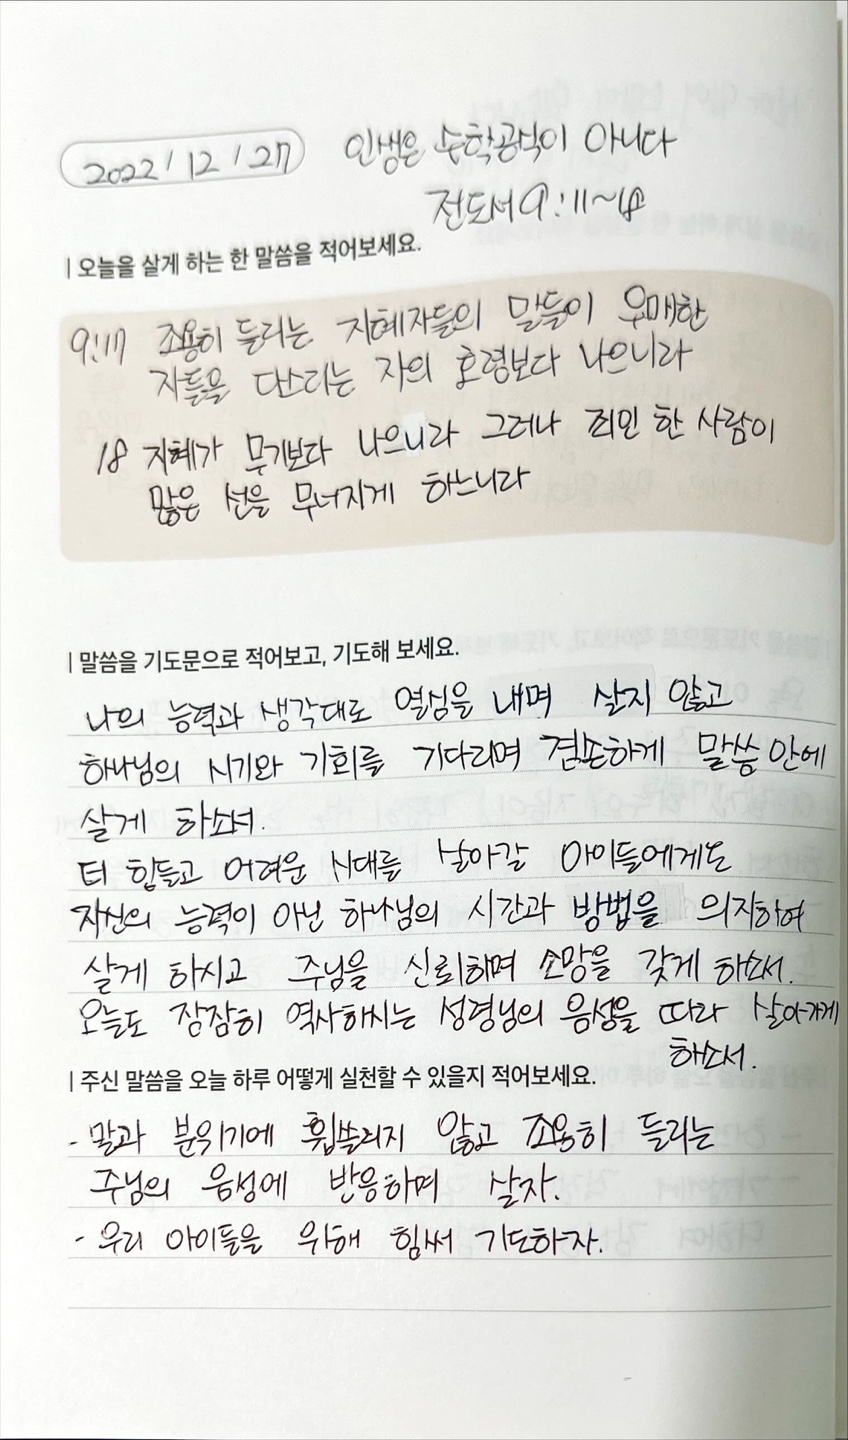 2022 / 12 / 27 인생은 수학공식이 아니다
전도서 9:11~18
| 오늘을 살게 하는 한 말씀을 적어보세요.
9:17 조용히 들리는 지혜자들의 말들이 우매한
자들을 다스리는 자의 호령보다 나으니라
18 지혜가 무기보다 나으니라 그러나 죄인 한 사람이
많은 선을 무너지게 하느니라
| 말씀을 기도문으로 적어보고, 기도해 보세요.
나의 능력과 생각대로 열심을 내며 살지 않고
하나님의 시기와 기회를 기다리며 겸손하게 말씀 안에
살게 하소서.
더 힘들고 어려운 시대를 살아갈 아이들에게도
자신의 능력이 아닌 하나님의 시간과 방법을 의지하여
살게 하시고 주님을 신뢰하며 소망을 갖게 하소서.
오늘도 잠잠히 역사하시는 성령님의 음성을 따라 살아가게
하소서.
| 주신 말씀을 오늘 하루 어떻게 실천할 수 있을지 적어보세요.
- 말과 분위기에 휩쓸리지 않고 조용히 들리는
주님의 음성에 반응하며 살자.
- 우리 아이들을 위해 힘써 기도하자.